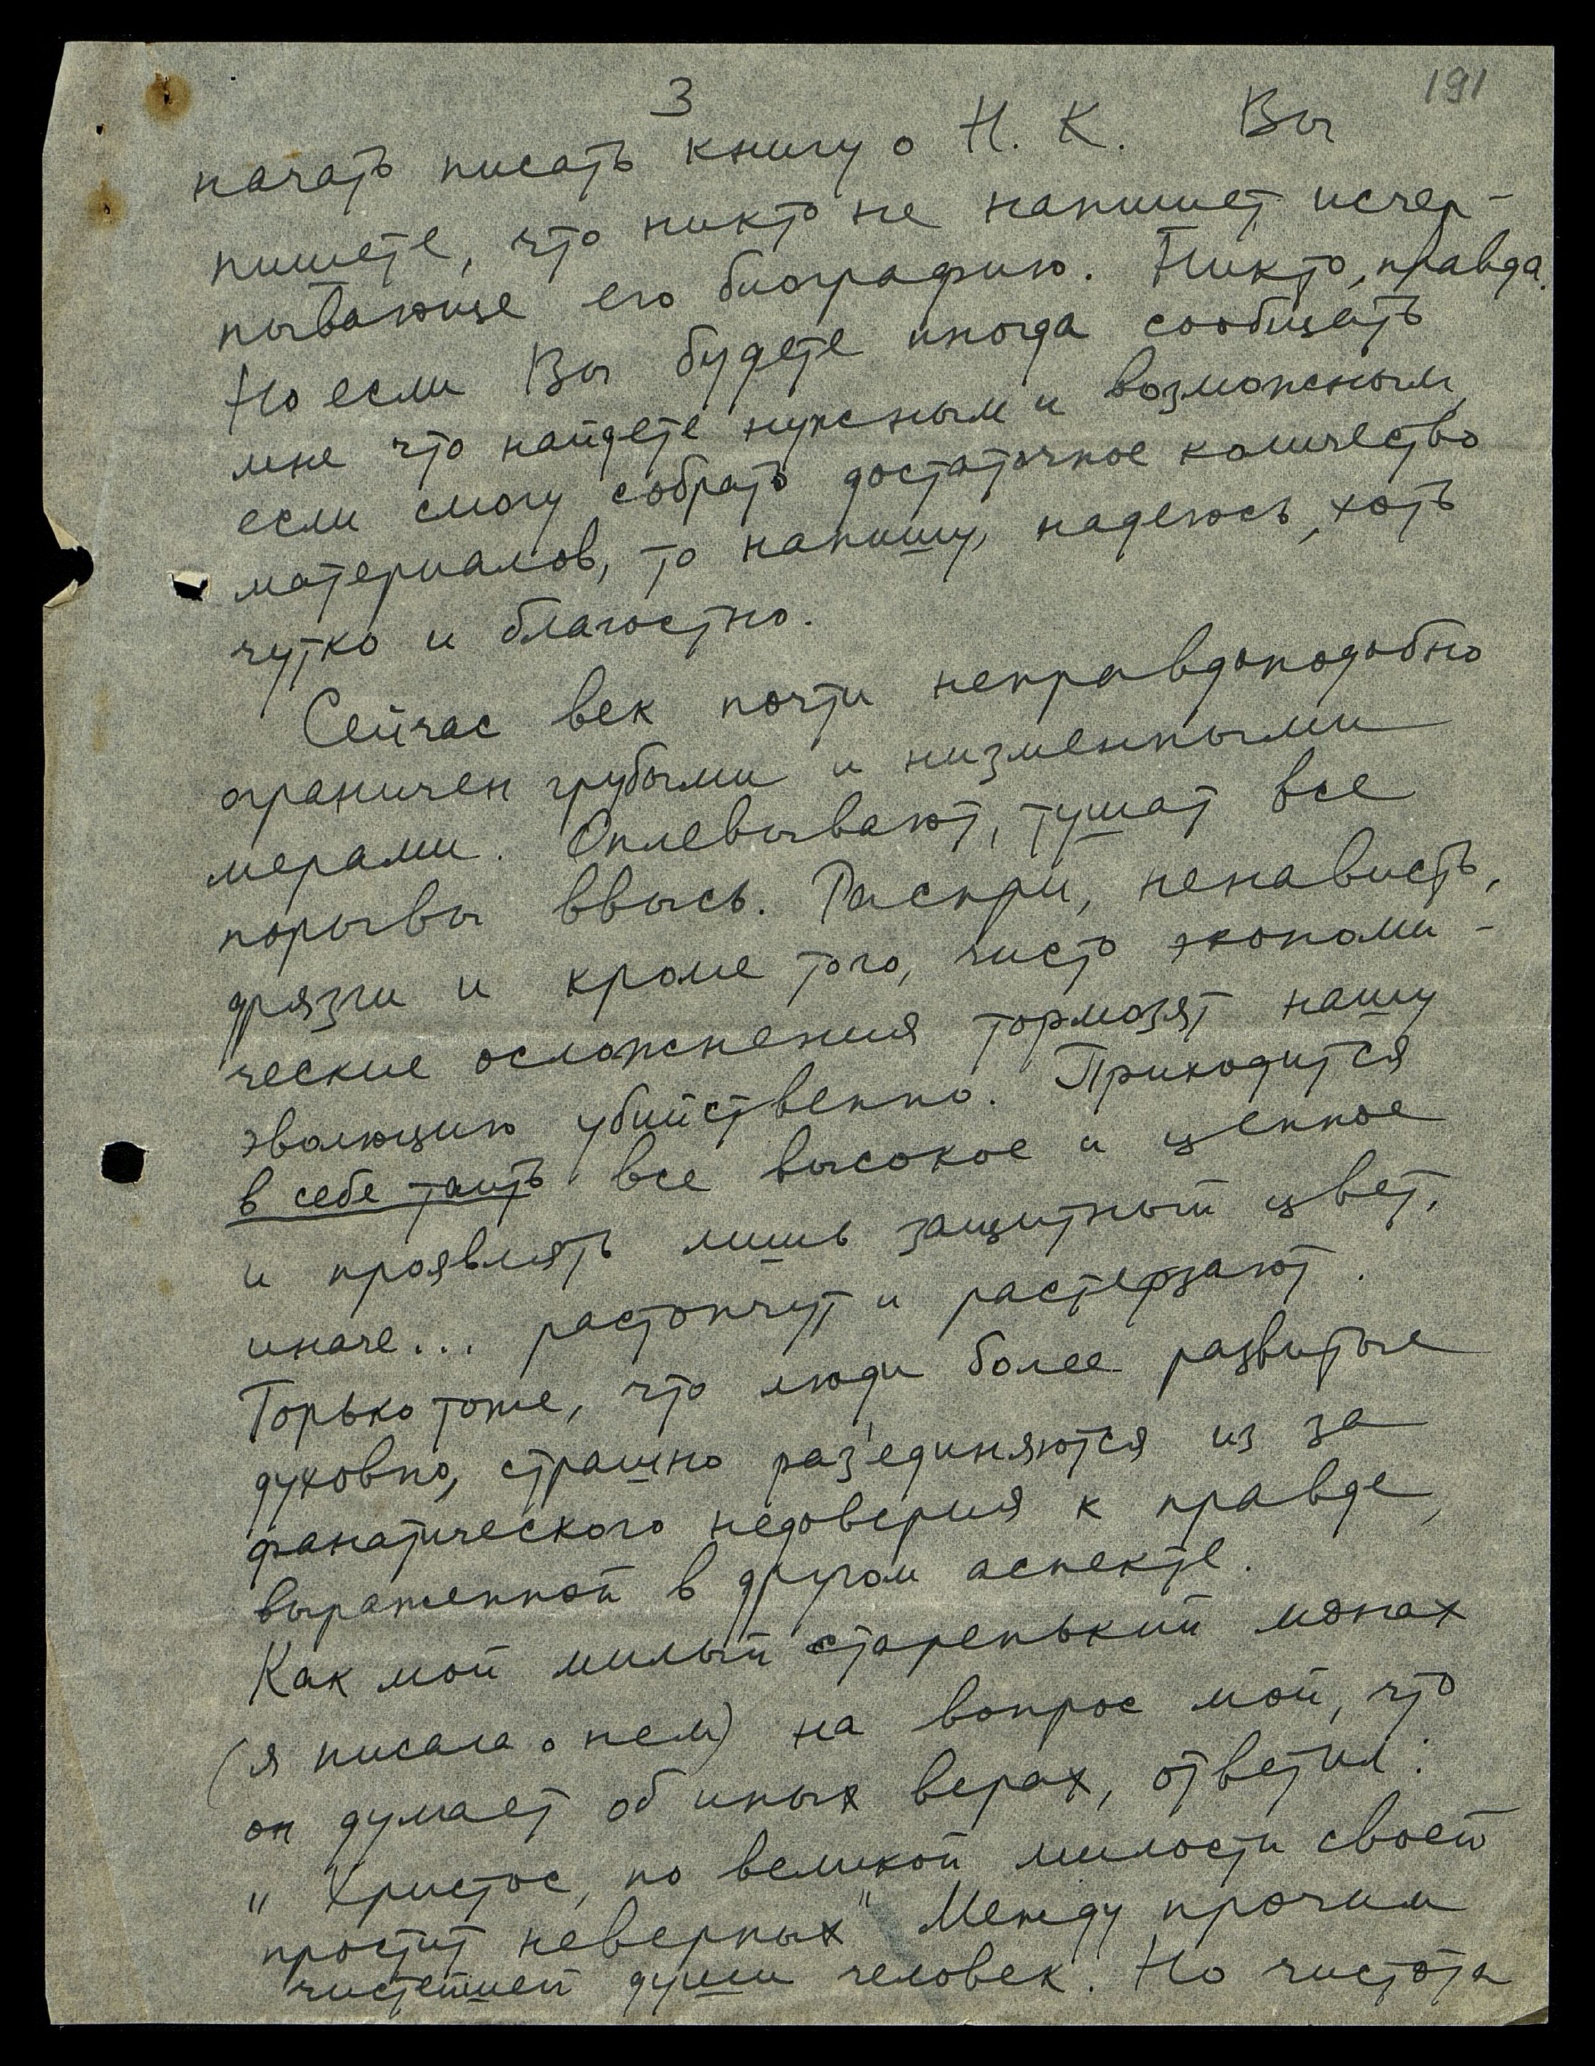 3
191
начать писать книгу о Н. К. Вы
пишете, что никто не напишет исчер-
пывающе его биографию. Никто, правда.
Но если Вы будете иногда сообщать
мне что найдете нужным и возможным,
если смогу собрать достаточное количество
материалов, то напишу, надеюсь, хоть
чутко и благостно.
Сейчас век почти неправдоподобно
ограничен грубыми и низменными
мерами. Оплевывают, тушат все
порывы ввысь. Распри, ненависть,
дрязги и кроме того, чисто экономи-
ческие осложнения тормозят нашу
эволюцию убийственно. Приходится
в себе таить все высокое и ценное
и проявлять лишь защитный цвет,
иначе... растопчут и растерзают.
Горько тоже, что люди более развитые
духовно, страшно раз'единяются из за
фанатического недоверия к правде,
выраженной в другом аспекте.
Как мой милый старенький монах
(я писала о нем) на вопрос мой, что
он думает об иных верах, ответил:
"Христос, по великой милости своей
простит неверных" Между прочим
чистейшей души человек. Но чистота